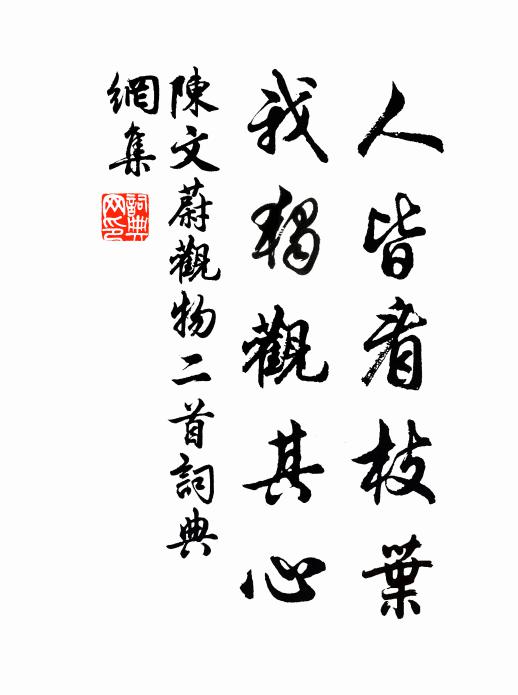 人皆看枝葉
我獨觀其心
陳文蔚觀物二首詞典
網集
詞典
网印